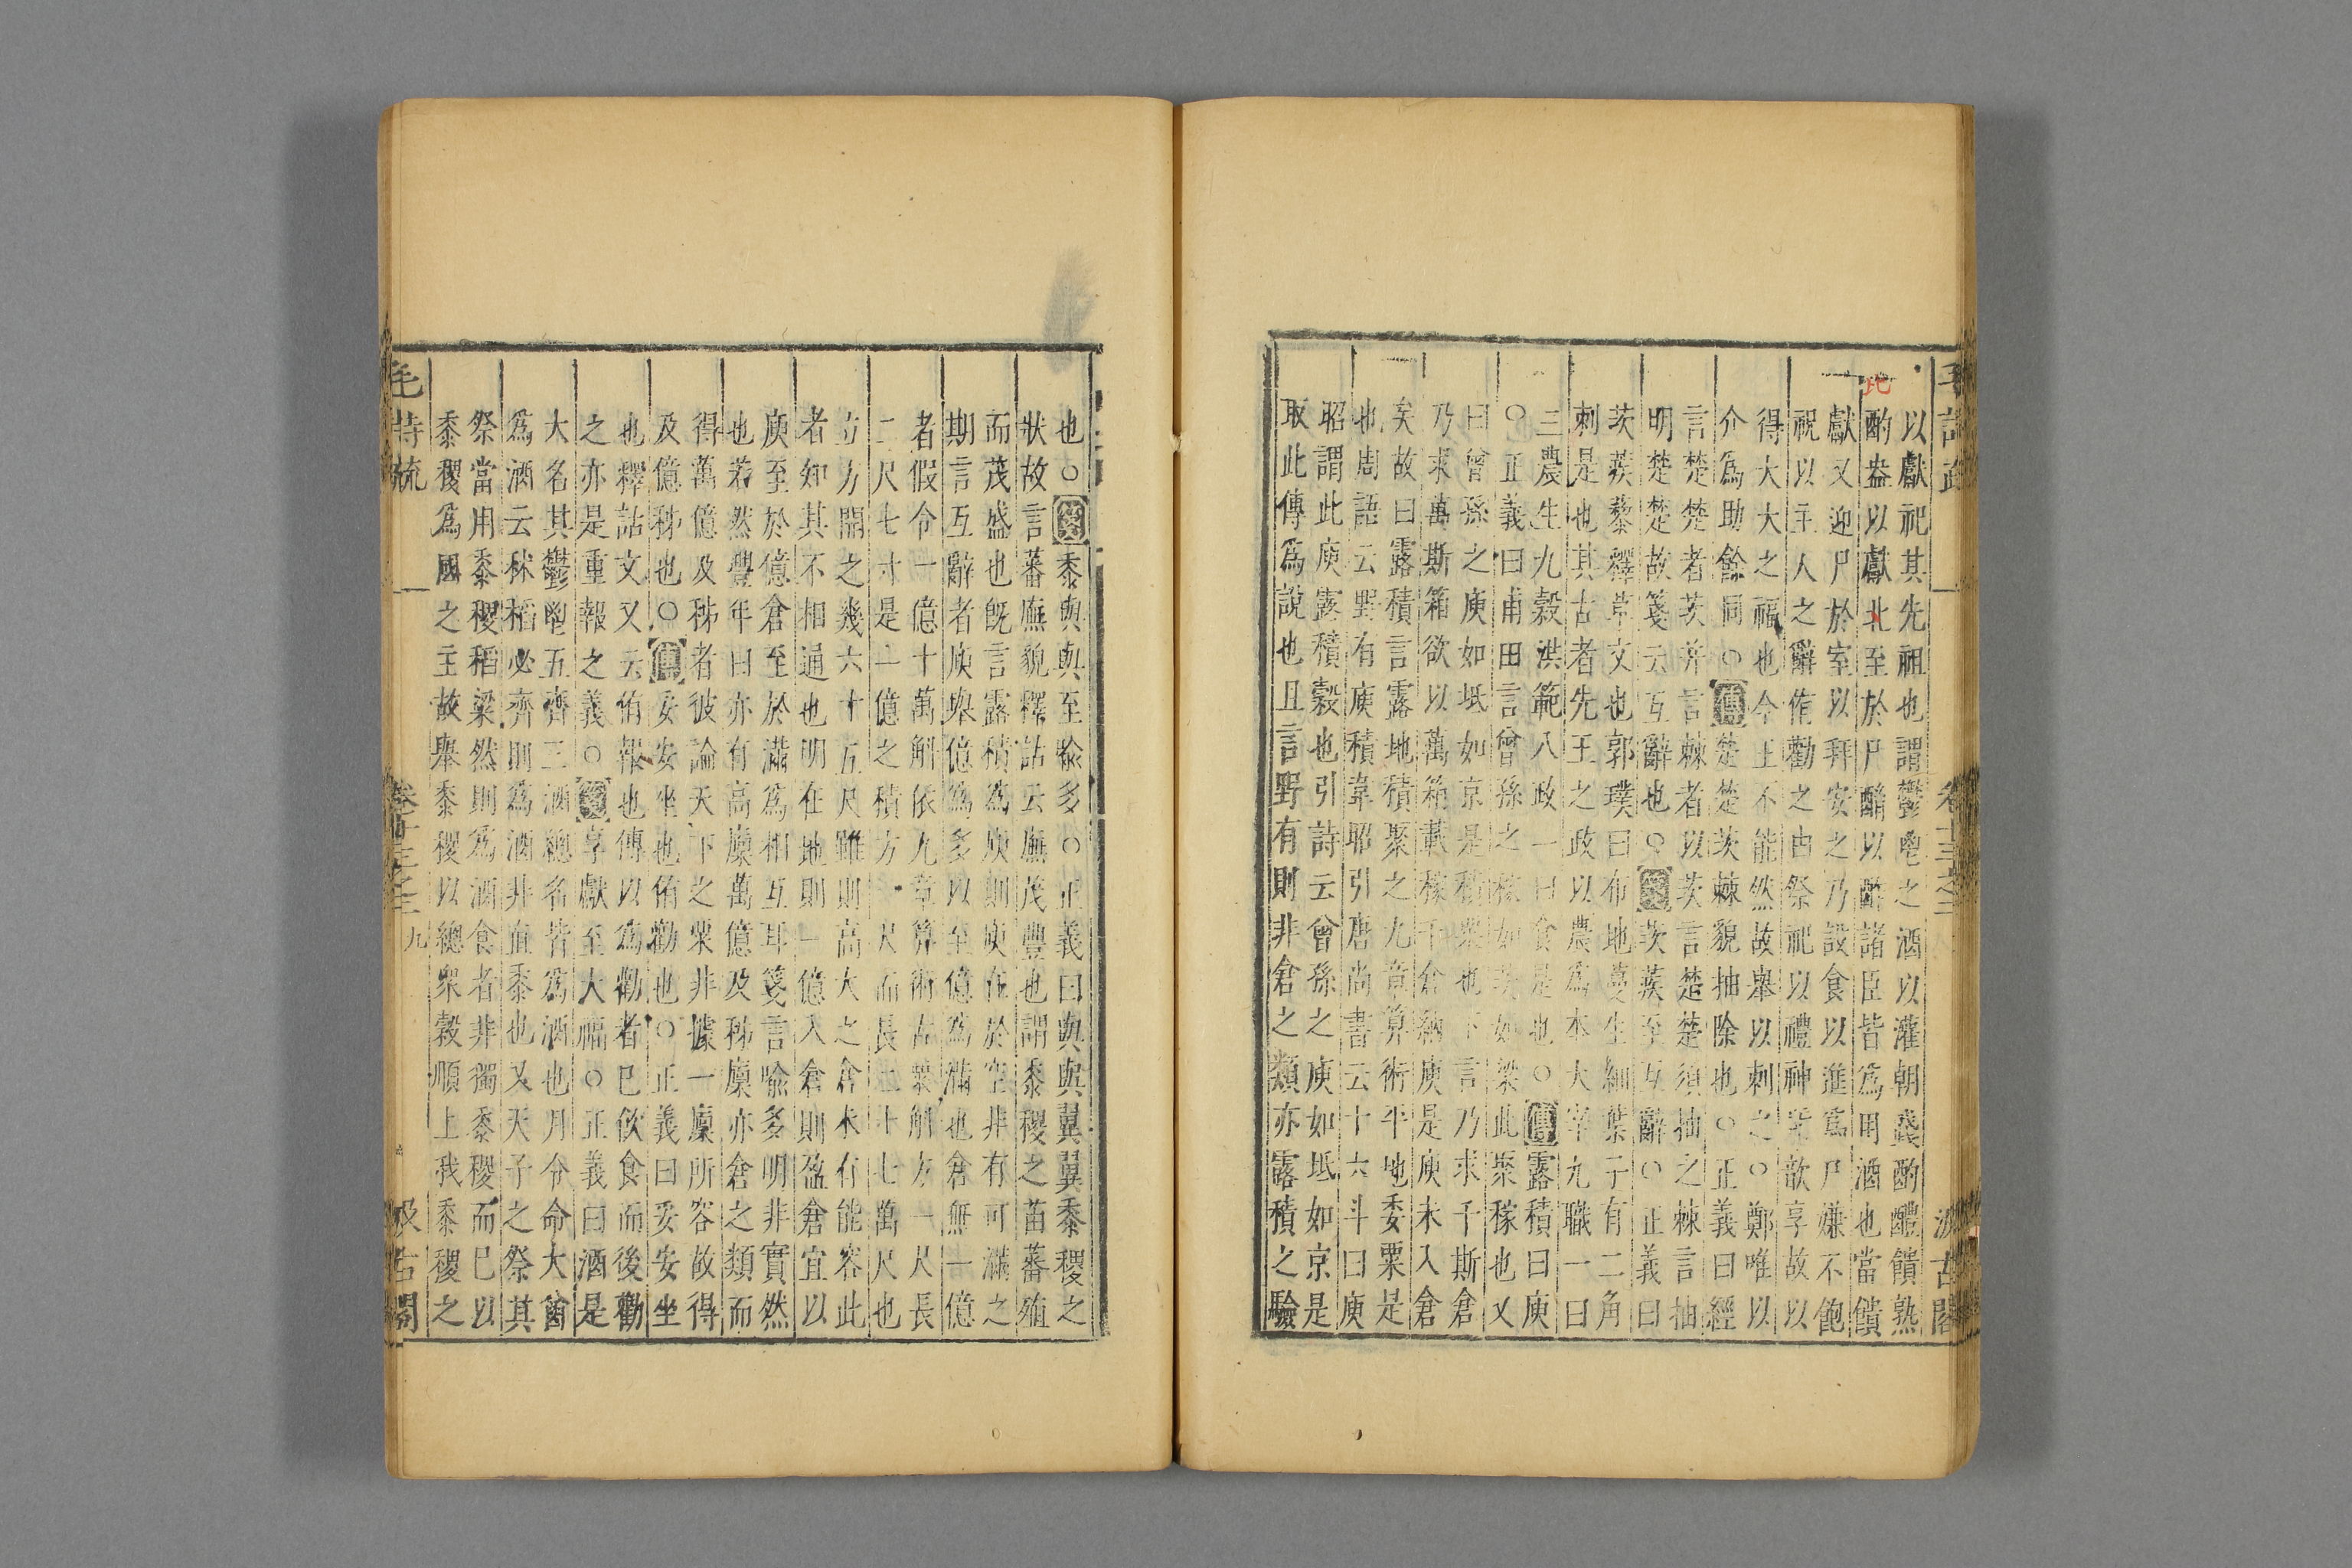 毛詩疏 卷十三之二 汲古閣
以獻祀其先祖也謂鬱鬯之酒以灌朝踐酌醴饋熟
酌盎以獻北至於尸酳以酢諸臣皆爲用酒也當饋
此
獻又迎尸於室以拜安之乃設食以進爲尸嫌不飽
祝以主人之辭侑勸之由祭祀以禮神 歆享故以
得大大之福也今王不能然故舉以刺之○鄭唯以
介爲助餘同○傳楚楚茨棘貌抽除也○正義曰經
言楚楚者茨并言棘者以茨言楚楚須抽之棘言抽
明楚楚故箋云互辭也○箋茨蒺至互辭○正義曰
茨蒺藜釋草文也郭璞曰布地蔓生細葉子有二角
刺是也其古者先王之政以農爲本大宰九職一曰
三農生九穀洪範八政一曰食是也○傳露積曰庾
○正義曰甫田言曾孫之稼如茨如梁此聚稼也又
曰曾孫之庾如坻如京是積粟也下言乃求千斯倉
乃求萬斯箱欲以萬箱載稼千倉納庾是庾未入倉
矣故曰露積言露地積聚之九章算術平地委粟是
也周語云野有庾積韋昭引唐尚書云十六斗曰庾
昭謂此庾露積穀也引詩云曾孫之庾如坻如京是
取此傳爲說也且言野有則非倉之類亦露積之驗
也○箋黍與與至喻多○正義曰與與翼翼黍稷之
狀故言蕃廡貌釋詁云廡茂豐也謂黍稷之苗蕃殖
而茂盛也既言露積爲庾則庾在於空非有可滿之
期言互辭者庾舉億爲多以至億爲滿也倉無一億
者假令一億十萬斛依九章算術古粟斛方一尺長
二尺七寸是一億之積方 尺而長二十七萬尺也
立方開之幾六十五尺雖則高大之倉未有能容此
者知其不相通也明在地則一億入倉則盈倉宜以
庾至於億倉至於滿爲相互耳箋言喻多明非實然
也若然豐年曰亦有高廩萬億及秭廩亦倉之類而
得萬億及秭者彼論天下之粟非據一廩所容故得
及億秭也○傳妥安坐也侑勸也○正義曰妥安坐
也釋詁文又云侑報也傳以爲勸者已飲食而後勸
之亦是重報之義○箋享獻至大福○正義曰酒是
大名其鬱鬯五齊三酒總名皆爲酒也月令命大酋
爲酒云秫稻必齊則爲酒非直黍也又天子之祭其
祭當用黍稷稻粱然則爲酒食者非獨黍稷而已以
黍稷爲國之主故舉黍稷以總衆穀順上我黍稷之
毛詩疏 卷十三之二 九 汲古閣